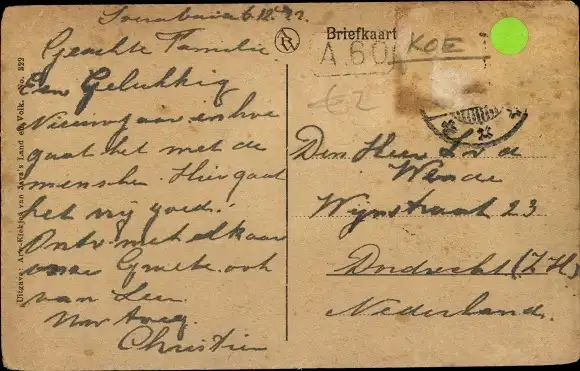 Soerabaia 6.12.22.
Geachte Familie
Een Gelukkig
Nieuwjaar en hoe
gaat het met de
menschen. Hier gaat
het vrij goed.
Ontv. met elkaar
onze Groete. ook
van Leen.
Christien
Briefkaart
A.60
KOE
€ 2
Den Heer L. v d
Wende
Wijnstraat 23
Dordrecht (Z.H)
Nederland.
Uitgave: Ars-Kiekjes van Java's Land en Volk. No. 322